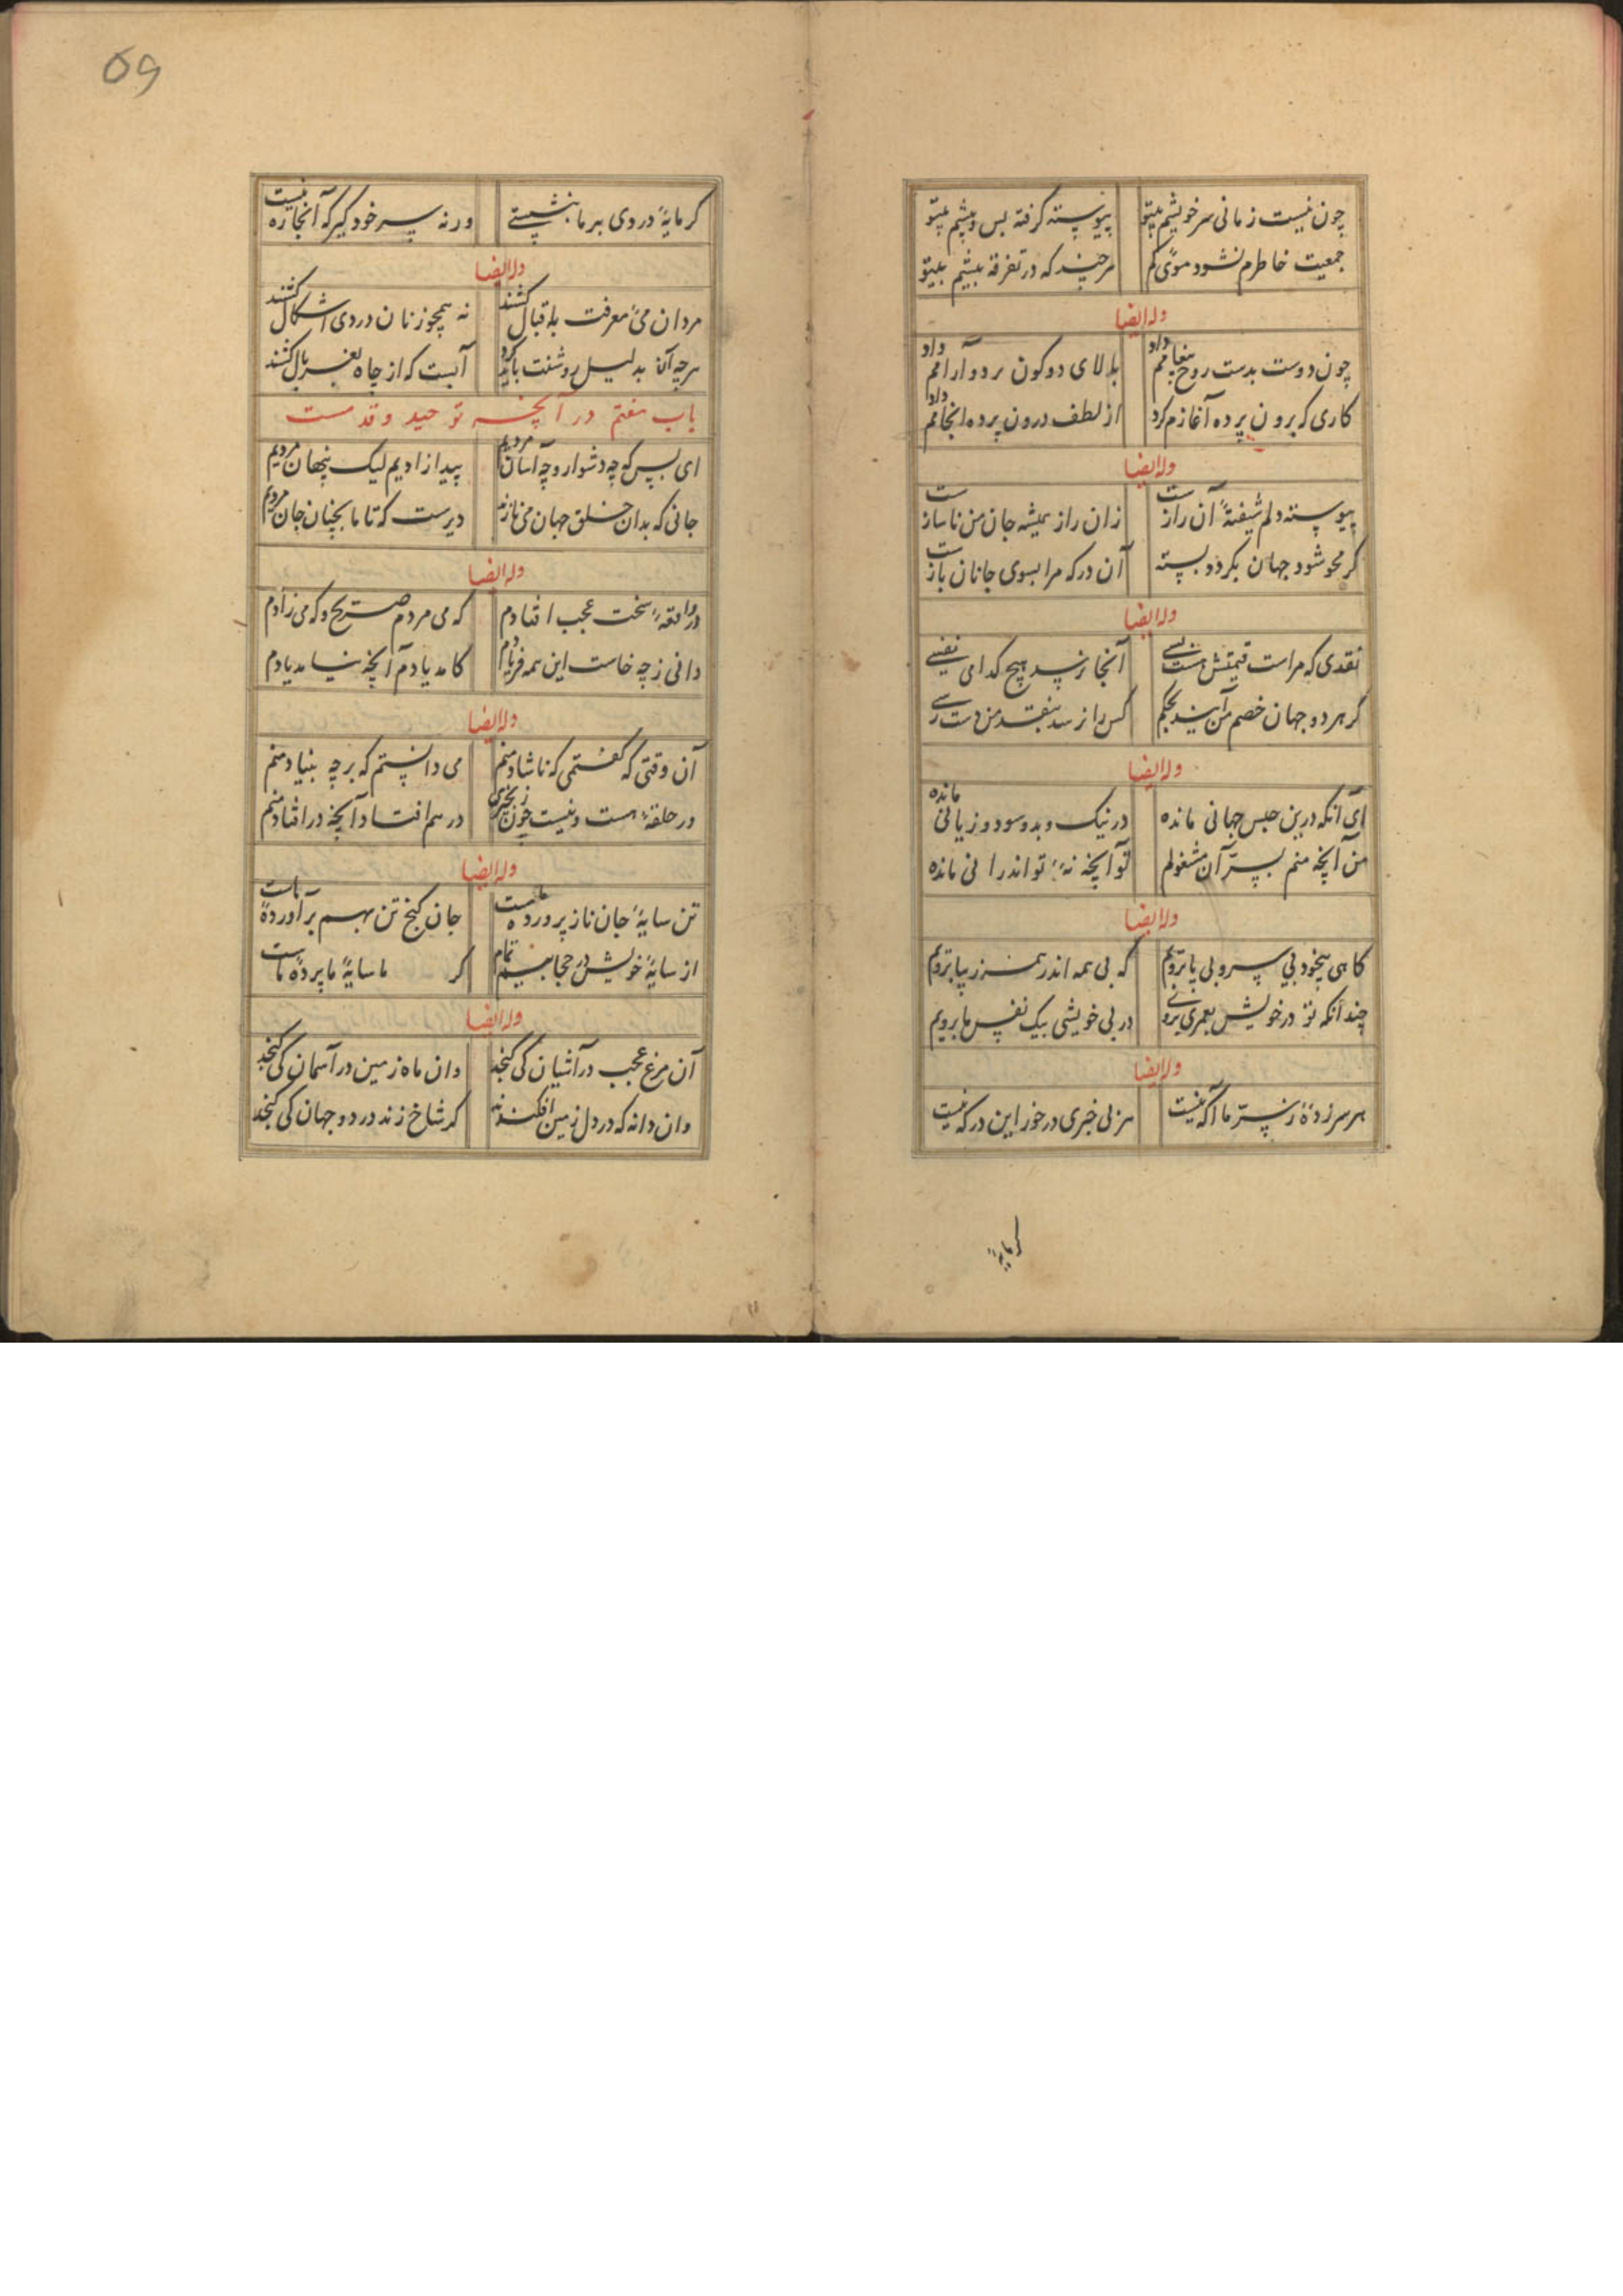 چون نیست زمانی سر خویشم بیتو پیوسته گرفته پس و پیشم بیتو
جمعیت خاطرم نشود موئی کم هرچند که در تفرقه بیشم بیتو
وله ایضا
چون دوست بدست روح پیغامم داد بالای دو کون برد و آرامم داد
کاری که برون پرده آغازم کرد از لطف درون پرده انجامم داد
وله ایضا
پیوسته دلم شیفتهٔ آن رازست زان راز همیشه جان من ناسازست
گر محو شود جهان بگردد بسته آن در که مرا بسوی جانان بازست
وله ایضا
نقدی که مراست قیمتش هست بسے آنجا نرسد هیچ کدامی نفسے
گر هر دو جهان خصم من آیند بحکم کس را نرسد بنقد من دست رسے
وله ایضا
ای آنکه درین حبس جهانی مانده در نیک و بد و سود و زیانی مانده
من آنچه منم بسرّ آن مشغولم تو آنچه نهٔ تو اندر انی مانده
وله ایضا
کاهی بیخود بی سر و بی پا برویم که بی همه اندر همه زیبا برویم
چندانکه تو در خویش بعمری بروے در بی خویشی بیک نفس ما برویم
وله ایضا
هر سرزدهٔ ز سرّ ما آکه نیست هر بی خبری در خور این درکه نیست
کرمایهٔ
59
کرمایهٔ دردی بر ما بنشینے ورنه پس سر خود گیر که آنجا ره نیست
وله ایضا
مردان می معرفت باقبال کشند نه همچو زنان دردی اشکال کشند
هرچه آن بدلیل روشنت باید کرد آبست که از چاه بغربال کشند
باب هفتم در آنچه توحید و قدمست
ای بس که چه دشوار و چه آسان مردیم پیدا زادیم لیک پنهان مردیم
جانی که بدان خلق جهان می نازند دیرست که تا ما بچنان جان مردیم
وله ایضا
در واقعهٔ سخت عجب افتادم که می مردم صریح و که می زادم
دانی ز چه خاست این همه فریادم کامد یادم آنچه نیامد یادم
وله ایضا
آن وقتی که گفتمی که ناشاد منم می دانستم که بر چه بنیاد منم
در حلقهٔ هست و نیست چون زنجیری درهم افتاد و آنچه در افتاد منم
وله ایضا
تن سایهٔ جان ناز پروردهٔ ماست جان گنج تن بهم برآوردهٔ ماست
از سایهٔ خویش در حجابیم تمام کر ما سایهٔ ما پردهٔ ماست
وله ایضا
آن مرغ عجب در آشیان کی گنجد وان ماه زمین در آسمان کی گنجد
وان دانه که در دل زمین افکندند کر شاخ زند در دو جهان کی گنجد